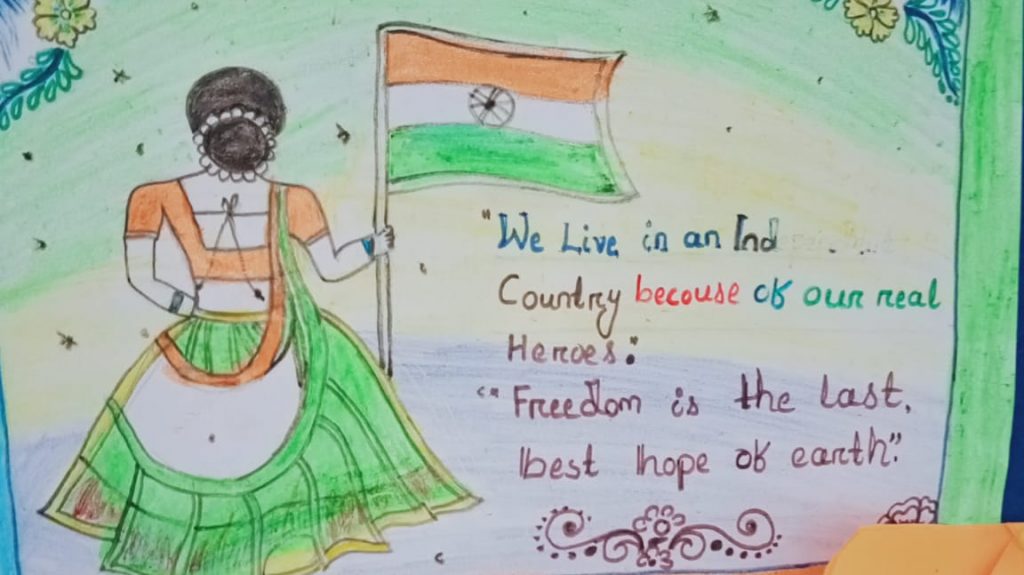 "We Live in an Ind
Country becouse of our real
Heroes."
"Freedom is the last,
best hope of earth".